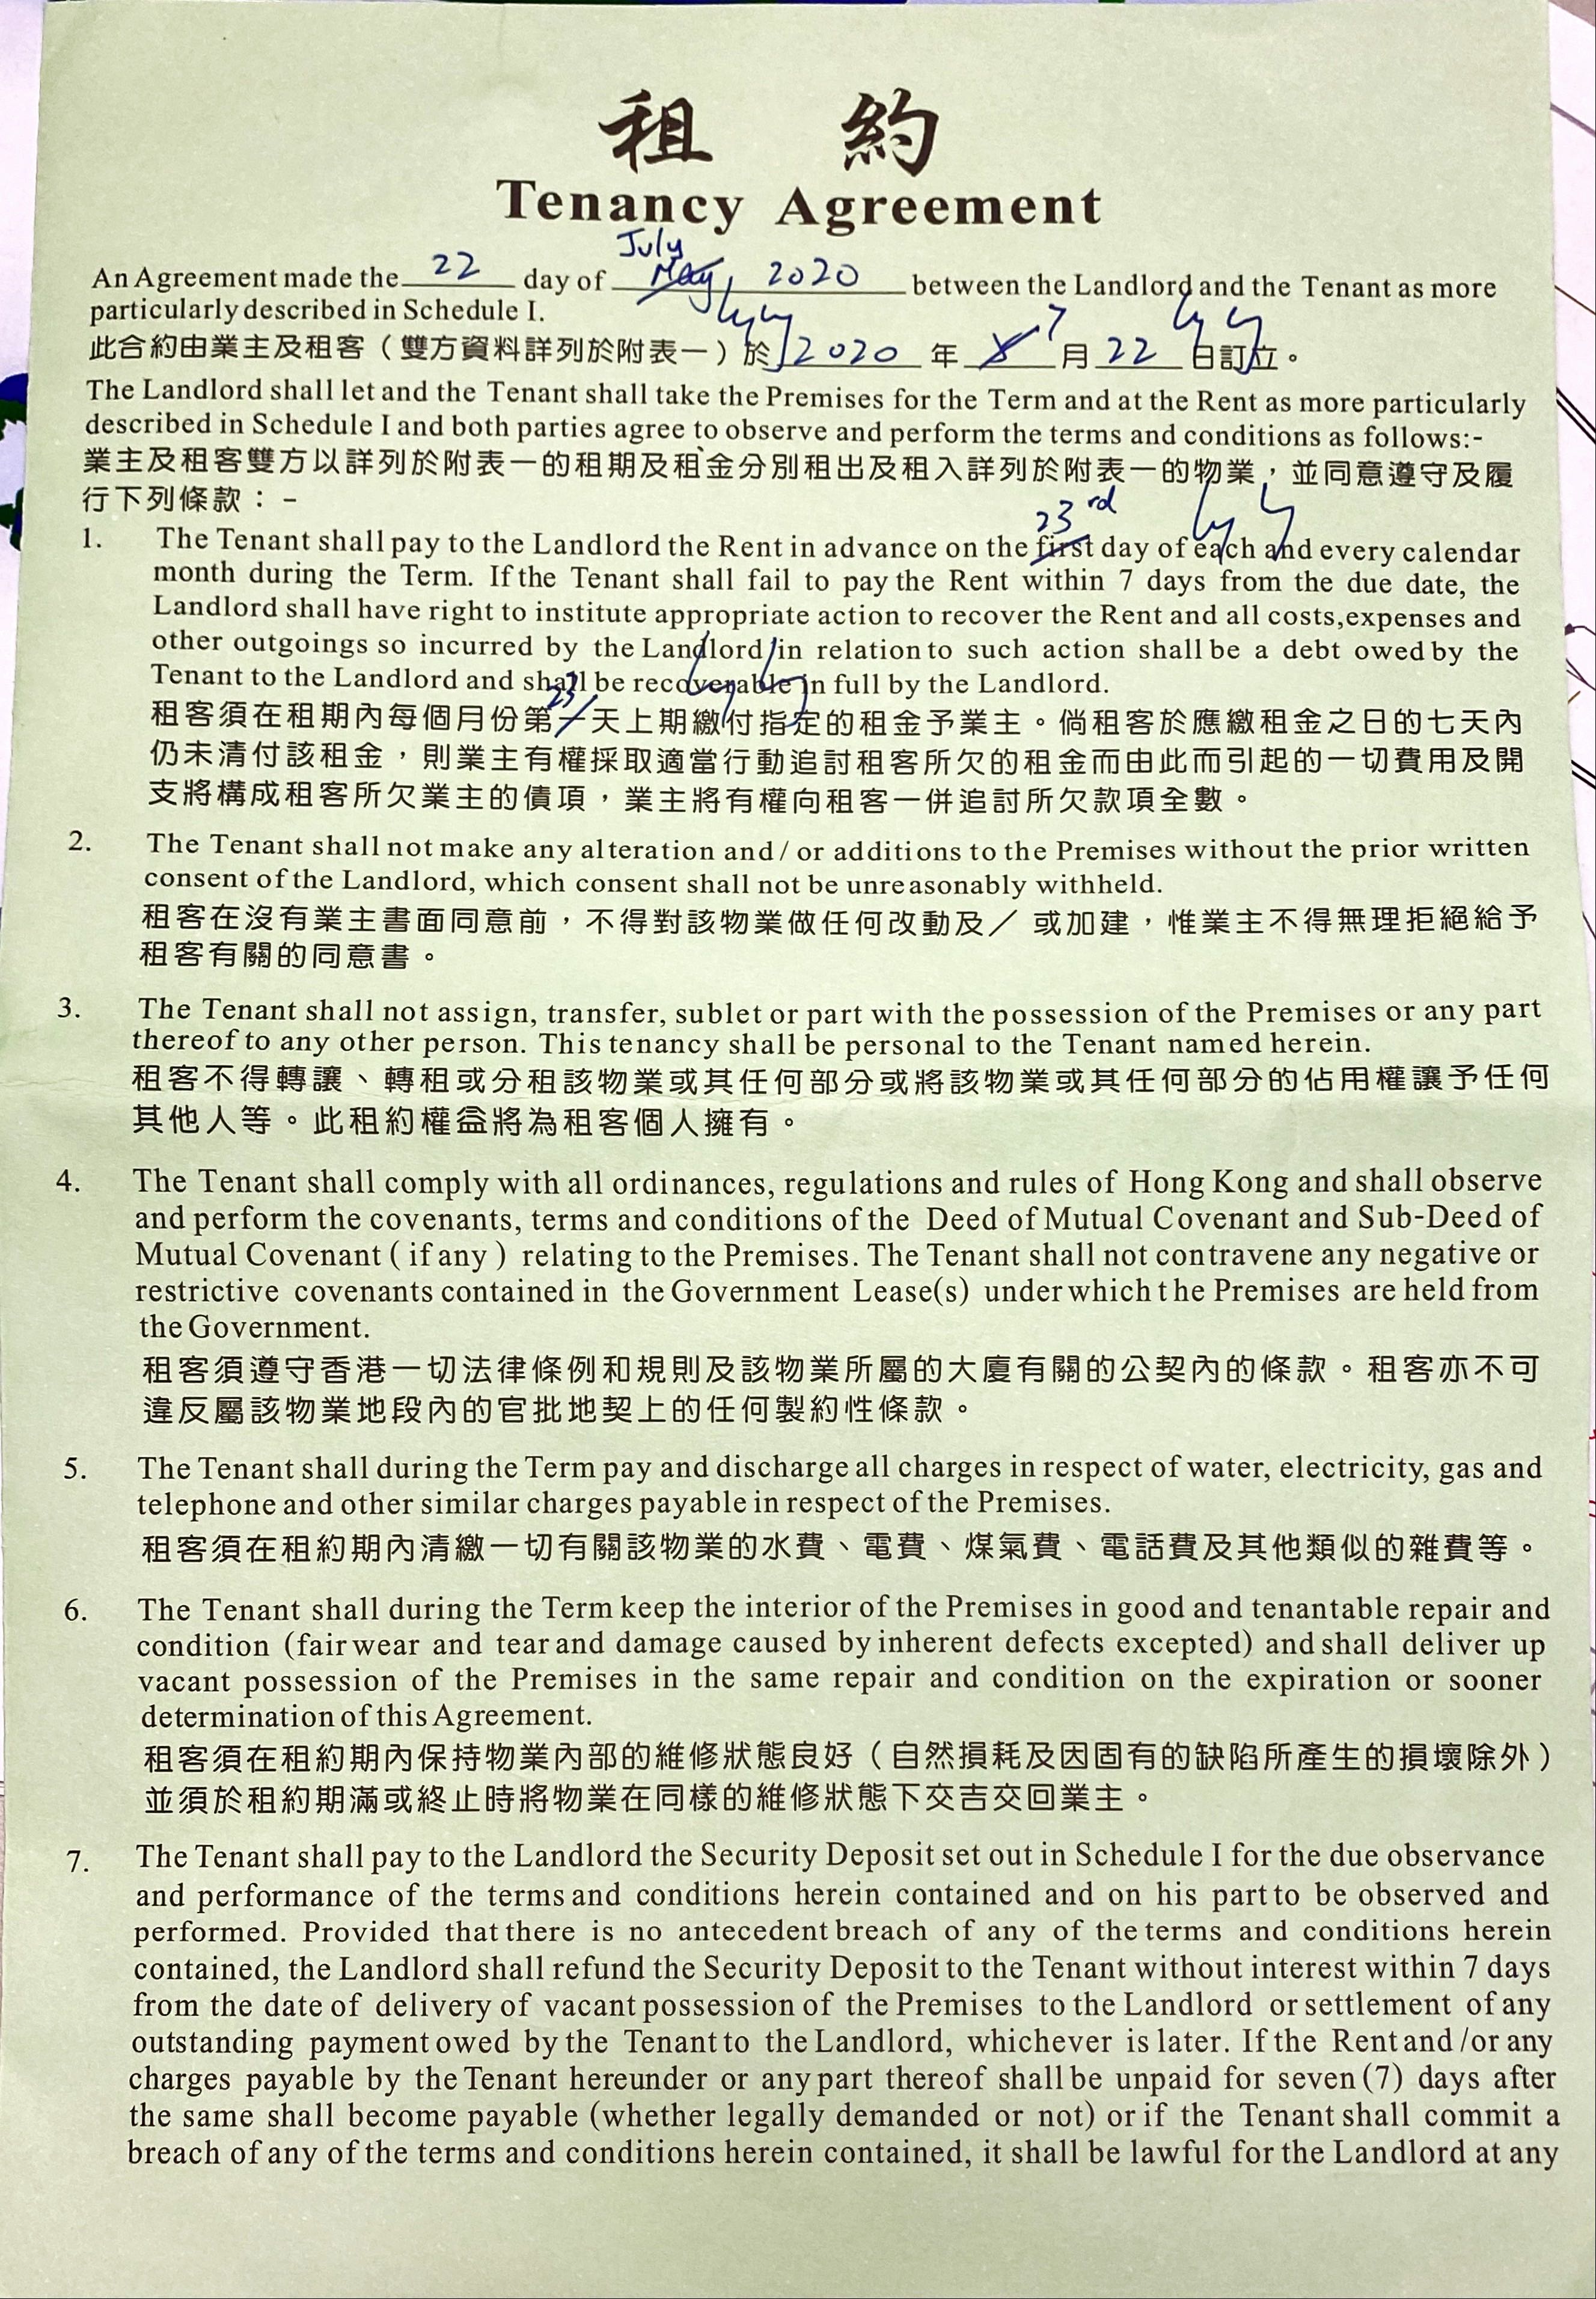 租 約
Tenancy Agreement
July
An Agreement made the 22 day of May, 2020 between the Landlord and the Tenant as more
particularly described in Schedule I.
此合約由業主及租客（雙方資料詳列於附表一）於 2020 年 7 月 22 日訂立。
The Landlord shall let and the Tenant shall take the Premises for the Term and at the Rent as more particularly
described in Schedule I and both parties agree to observe and perform the terms and conditions as follows:-
業主及租客雙方以詳列於附表一的租期及租金分別租出及租入詳列於附表一的物業，並同意遵守及履
行下列條款：－
23rd
1. The Tenant shall pay to the Landlord the Rent in advance on the first day of each and every calendar
month during the Term. If the Tenant shall fail to pay the Rent within 7 days from the due date, the
Landlord shall have right to institute appropriate action to recover the Rent and all costs,expenses and
other outgoings so incurred by the Landlord in relation to such action shall be a debt owed by the
Tenant to the Landlord and shall be recoverable in full by the Landlord.
23
租客須在租期內每個月份第一天上期繳付指定的租金予業主。倘租客於應繳租金之日的七天內
仍未清付該租金，則業主有權採取適當行動追討租客所欠的租金而由此而引起的一切費用及開
支將構成租客所欠業主的債項，業主將有權向租客一併追討所欠款項全數。
2. The Tenant shall not make any alteration and/ or additions to the Premises without the prior written
consent of the Landlord, which consent shall not be unreasonably withheld.
租客在沒有業主書面同意前，不得對該物業做任何改動及／ 或加建，惟業主不得無理拒絕給予
租客有關的同意書。
3. The Tenant shall not assign, transfer, sublet or part with the possession of the Premises or any part
thereof to any other person. This tenancy shall be personal to the Tenant named herein.
租客不得轉讓、轉租或分租該物業或其任何部分或將該物業或其任何部分的佔用權讓予任何
其他人等。此租約權益將為租客個人擁有。
4. The Tenant shall comply with all ordinances, regulations and rules of Hong Kong and shall observe
and perform the covenants, terms and conditions of the Deed of Mutual Covenant and Sub-Deed of
Mutual Covenant ( if any ) relating to the Premises. The Tenant shall not contravene any negative or
restrictive covenants contained in the Government Lease(s) under which the Premises are held from
the Government.
租客須遵守香港一切法律條例和規則及該物業所屬的大廈有關的公契內的條款。租客亦不可
違反屬該物業地段內的官批地契上的任何製約性條款。
5. The Tenant shall during the Term pay and discharge all charges in respect of water, electricity, gas and
telephone and other similar charges payable in respect of the Premises.
租客須在租約期內清繳一切有關該物業的水費、電費、煤氣費、電話費及其他類似的雜費等。
6. The Tenant shall during the Term keep the interior of the Premises in good and tenantable repair and
condition (fair wear and tear and damage caused by inherent defects excepted) and shall deliver up
vacant possession of the Premises in the same repair and condition on the expiration or sooner
determination of this Agreement.
租客須在租約期內保持物業內部的維修狀態良好（自然損耗及因固有的缺陷所產生的損壞除外）
並須於租約期滿或終止時將物業在同樣的維修狀態下交吉交回業主。
7. The Tenant shall pay to the Landlord the Security Deposit set out in Schedule I for the due observance
and performance of the terms and conditions herein contained and on his part to be observed and
performed. Provided that there is no antecedent breach of any of the terms and conditions herein
contained, the Landlord shall refund the Security Deposit to the Tenant without interest within 7 days
from the date of delivery of vacant possession of the Premises to the Landlord or settlement of any
outstanding payment owed by the Tenant to the Landlord, whichever is later. If the Rent and /or any
charges payable by the Tenant hereunder or any part thereof shall be unpaid for seven (7) days after
the same shall become payable (whether legally demanded or not) or if the Tenant shall commit a
breach of any of the terms and conditions herein contained, it shall be lawful for the Landlord at any